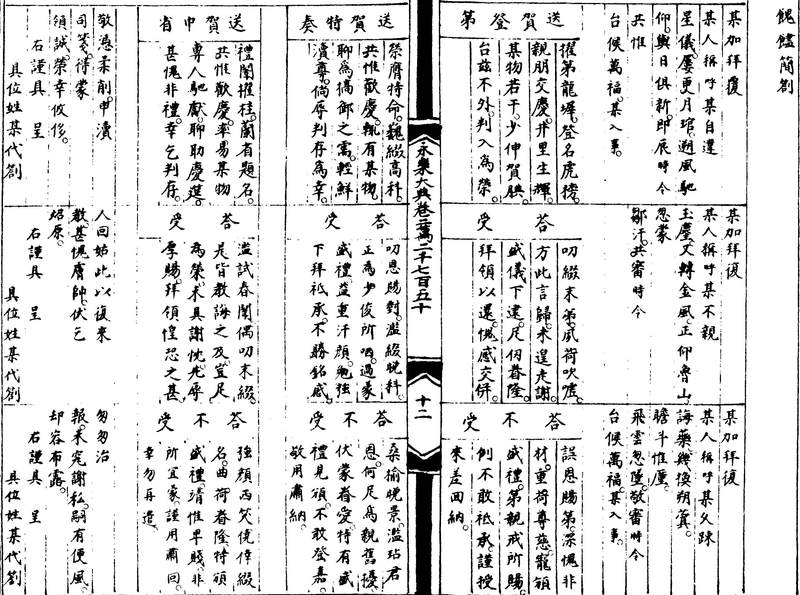 餽饚簡劄
某加拜覆
某人稱呼某自違
星儀屢更月琯遡風馳
仰與日俱新即辰時令
共惟
台候萬福某入事
送賀登第
擢第龍墀登名虎榜
親朋交慶井里生輝
某物若干少伸賀臆
台兹不外判入為榮
送賀特奏
榮膺特命巍綴高科
共惟歡慶輒有某物
聊為犒御之需輕鮮
瀆尊倘辱判存為幸
送賀中省
禮闈擢桂蘭省題名
共惟歡慶率易某物
專人馳獻聊助慶筵
甚愧非禮幸乞判存
敬憑柔削申瀆
司筦得蒙
領誠榮幸攸侈
右謹具 呈
具位姓某代劄
某加拜復
某人稱呼某不親
玉塵又轉金風正仰魯山
忽蒙
鄒汗共審時令
荅受
叨綴末第夙荷吹噓
方此言歸未遑走謝
盛儀下逮足仭眷隆
拜領以還愧感交併
荅受
叨恩賜對濫綴晚科
正為少俊所哂過蒙
盛禮益重汗顔勉強
下拜祗承不勝銘感
荅受
濫試春闈偶叨末綴
是皆教誨之及宜足
為榮未具謝忱先辱
厚賜拜領惶恐之甚
人回姑此以復來
教甚愧膚帥伏乞
炤原
右謹具 呈
具位姓某代劄
某加拜復
某人稱呼某久踈
誨藥幾換朔蓂
瞻斗惟厪
飛雲忽墮敬審時令
台候萬福某入事
荅不受
誤恩賜第深愧非
材重荷尊慈寵頒
盛禮第親戒所賜
例不敢祗承謹授
來差回納
荅不受
桑榆晚景濫玷君
恩何足為親舊擾
伏蒙眷愛特有盛
禮見頒不敢登嘉
敬用肅納
荅不受
強顔西笑僥倖綴
名曲荷眷隆特頒
盛禮靖惟卑賤非
所宜蒙謹用肅回
幸勿再造
匆匆治
報未究謝私嗣有便風
却容布露
右謹具 呈
具位姓某代劄
永樂大典卷二萬二千七百五十
十二